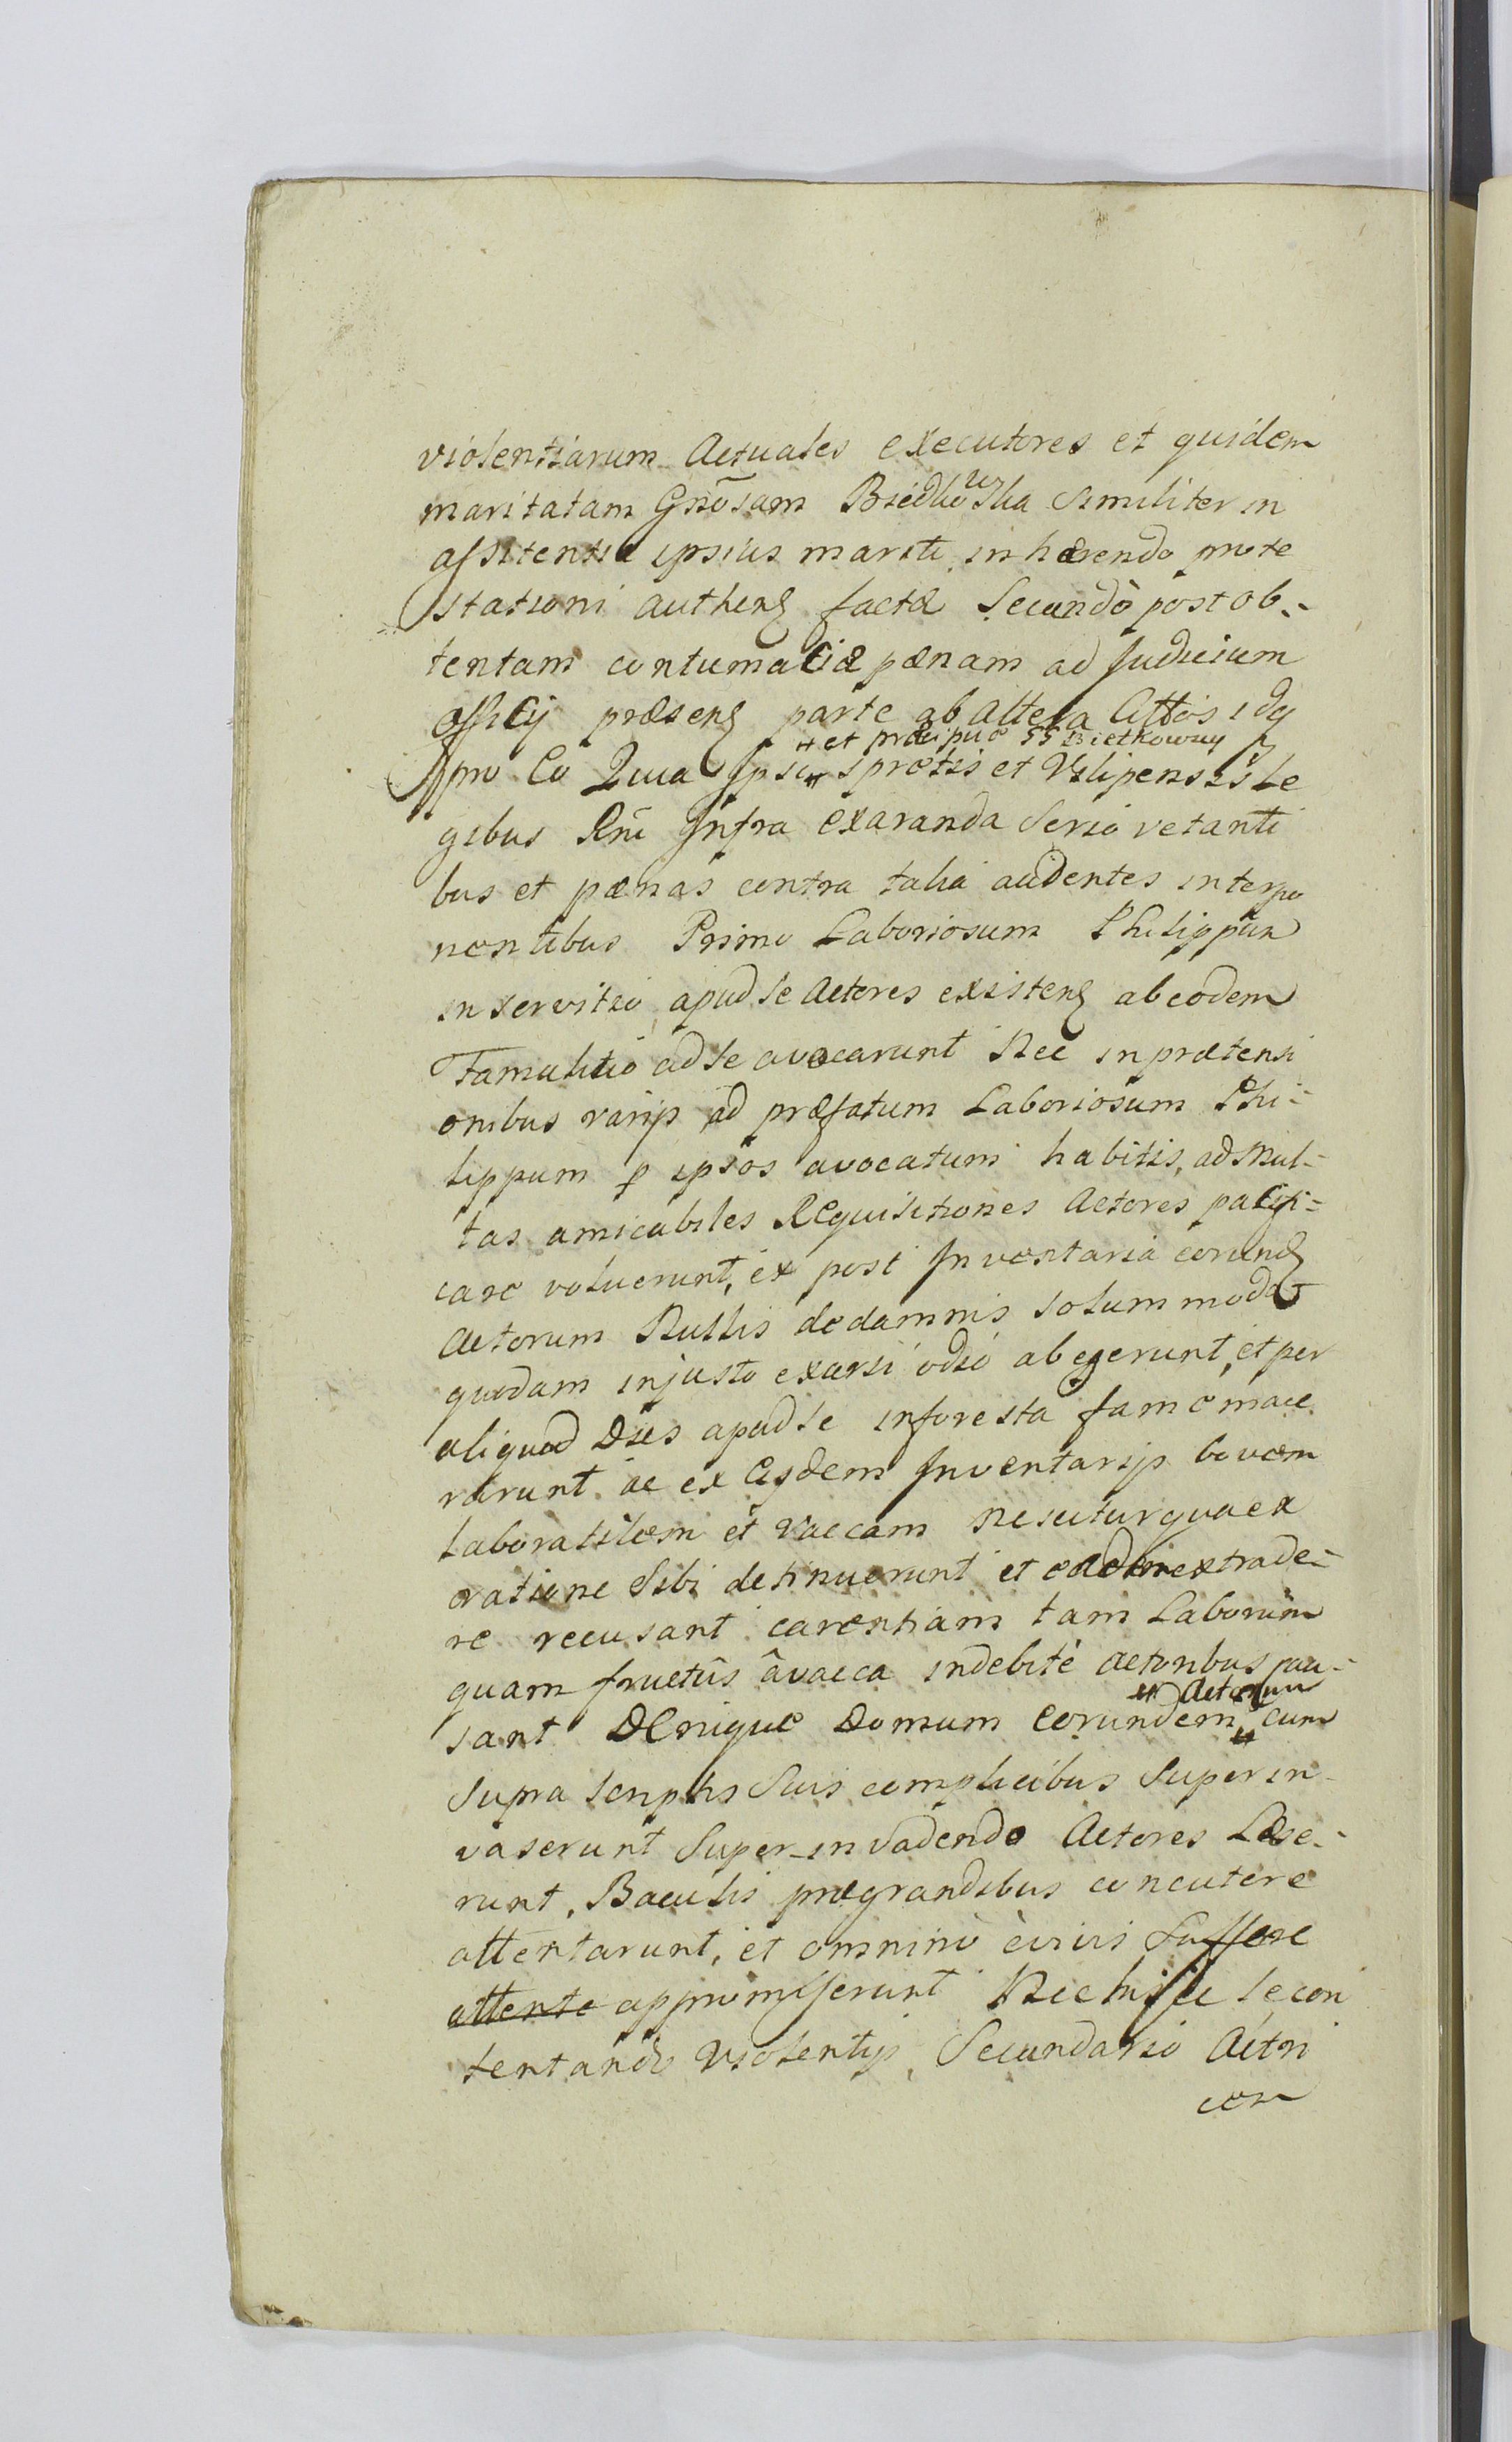 violentiarum Actuales executores et quidem
maritatam Gnōsam Biedkowska Similiter in
assitentia ipsius mariti inhærendo prote
stationi authenz factæ Secundò post ob-
tentam contumaciæ pœnam ad Judicium
officij præsenz parte ab altera Attōs idq
pro Eo Quia Ipsi # et præcipue SS Bietkowscy # spretis et Vilipensis Le
gibus Rni Infra exaranda Serio vetanti
bus et pænas contra talia audentes interpo
nentibus Primo Laboriosum Philippum
in servitio apud se Actores existenz ab eodem
Famulitio ad se avocarunt Nec in prætensi
onibus varijs ad præfatum Laboriosum Phi-
lippum p ipsos avocatum habitis, ad Mul-
tas amicabiles Requisitiones Actores pacifi-
care voluerunt, ex post Inventaria eorundz
Actorum Nullis de damnis solum modo
quodam injusto exarsi odio abegerunt, et per
aliquod Dies apud se in foresta fame mace
rarunt ac ex Eisdem Inventarijs bovem
laboratilem et vaccam nescitur qua ex
ratione Sibi detinuerunt et eadem extrade-
re recusant carentiam tam Laborum
quam fructûs â vacca indebitè actoribus cau-
sant Denique Domum eorundem # Actorum # cum
supra scriptis Suis complicibus Superin-
vaserunt Super-invadendo Actores Læse-
runt, Baculis prægrandibus concutere
attentarunt, et omnino è vivis
attente appromiserunt Nec hisce se con
tentando Violentijs, Secundario Actori
cem